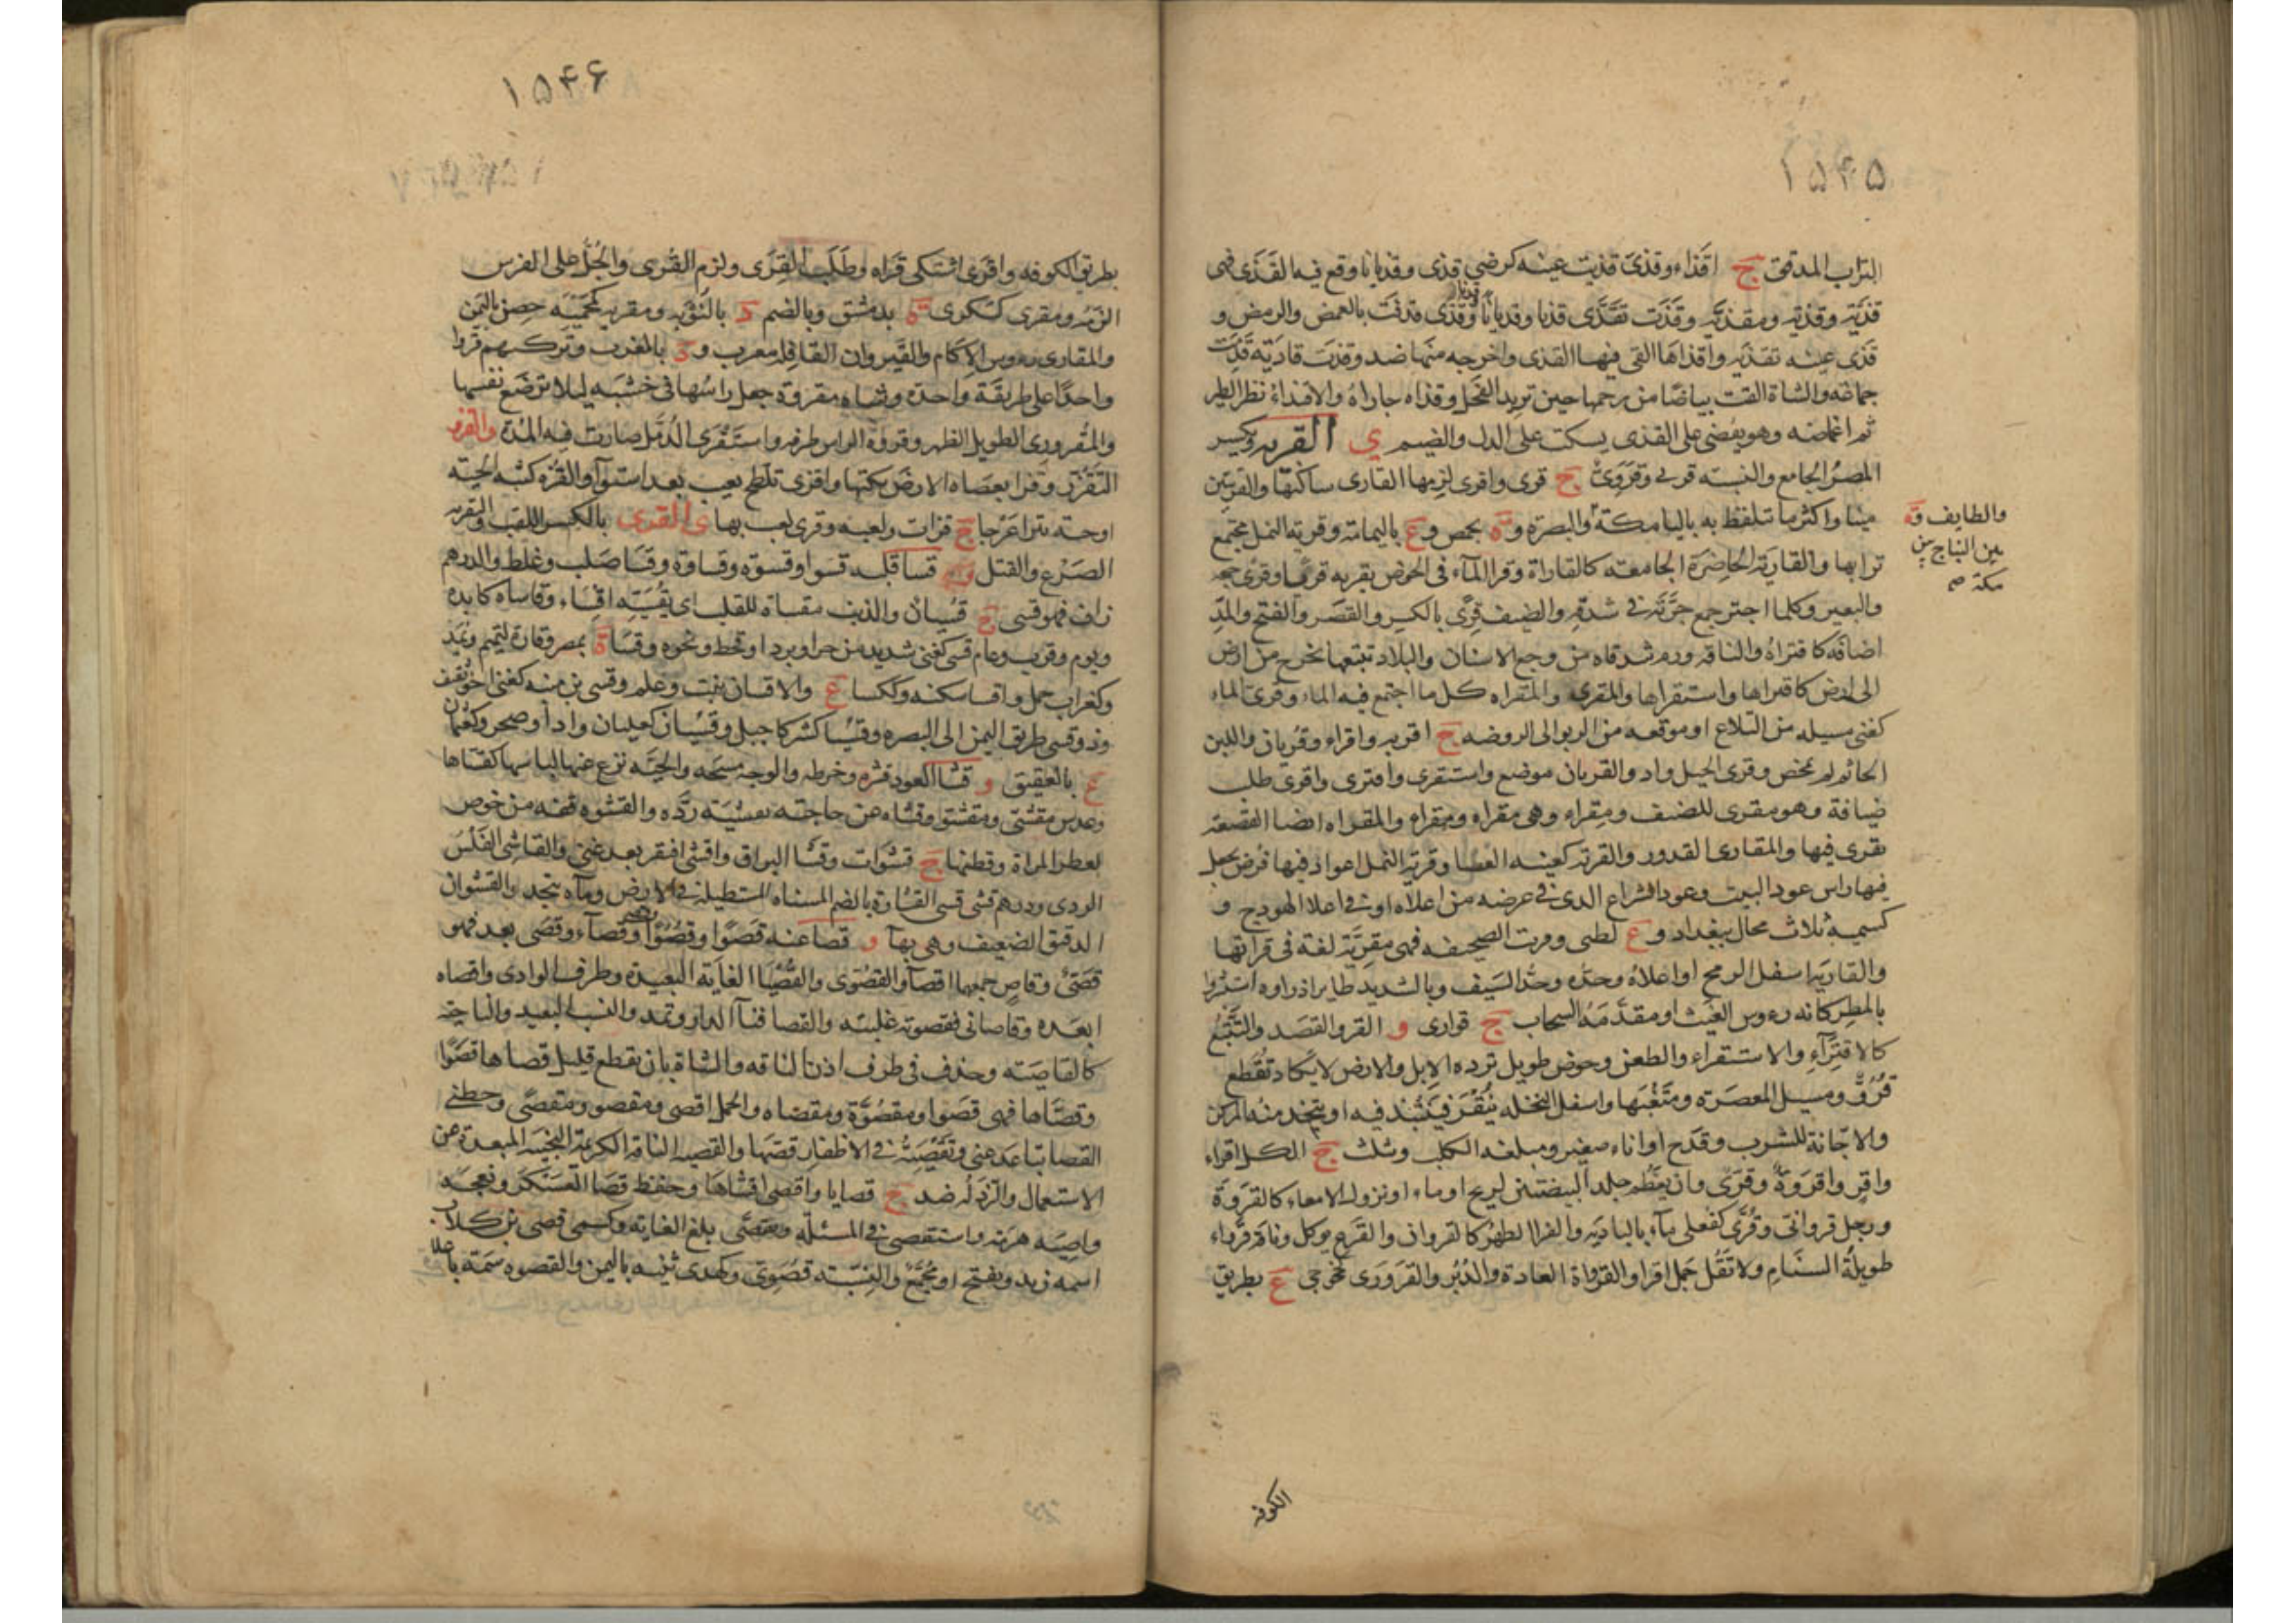 ۱۵۴۵
التراب المدقق ج اقذاء وقذى قذيت عينه كرضي قذى وقذيانا وقع فيه القذى فهى
قذية وقذية ومقذية وقذت تقذى قذيا وقذيانا وقذى قذفت بالغمض والرمض و
قذى عينه تقذية واقذاها القى فيها القذى واخرجه منها ضد وقذت قاذية قدمت
جماعة والشاة القت بياضا من رحمها حين تريد الفحل وقذاه جازاه والاقذاء نظر الطير
ثم اغماضه وهو يغضى على القذى يسكت على الذل والضيم ي القرية ويكسر
المصر الجامع والنسبة قرئى وقروى ج قرى واقرى لزمها القارى ساكنها والقريتين
مثنا واكثر ما تتلفظ به باليا مكة والبصرة و ة بحمص و ع باليمامة وقرية النمل مجتمع
والطايف و ة
بين النباج بين
مكة صح
ترابها والقارية الحاضرة الجامعة كالقاراة وقرا الماء فى الحوض يقريه قريا وقرى جمعه
والبعير وكلما اجتر جمع جرته فى شدقه والضيف قرى بالكسر والقصر والفتح والمد
اضافه كاقتراه والناقة ورم شدقاه من وجع الاسنان والبلاد تتبعها يخرج من ارض
الى ارض كاقتراها واستقراها والمقرى والمقراه كل ما اجتمع فيه الماء وقرى الماء
كغنى مسيله من التلاع او موقعه من الربو الى الروضه ج اقرية واقراء وقريان واللبن
الخاثر لم يمخض وقرى الخيل واد والقريان موضع واستقرى واقترى واقرى طلب
ضيافة وهو مقرى للضيف ومقراه وهى مقراه ومقراء والمقراه ايضا القصعة
يقرى فيها والمقارى القدور والقرية كغينه العصا وقرية النمل اعواد فيها فرض يجعل
فيها راس عود البيت وعود الشراع الذى فى عرضه من اعلاه او فى اعلا الهودج و
كسمية ثلاث محال ببغداد و ع لطى وقريت الصحيفه فهى مقرية لغة فى قراتها
والقارية اسفل الرمح او اعلاه وحده وحد السيف وبالتشديد طاير اذا راوه استبشروا
بالمطر كانه رءوس الغيث او مقدمة السحاب ج قوارى و القرو القصد والتتبع
كالاقتراء والاستقراء والطعن وحوض طويل ترده الابل والارض لا يكاد تقطع
قرو ومسيل المعصرة ومثعبها واسفل النخله ينقر فينبذ فيه او يتخذ منه المركن
والاجانة للشرب وقدح او اناء صغير ومبلغة الكلب وتثلث ج الكل اقراء
واقر واقروة وقرى وان يعظم جلد البيضتين لريح او ماء او نزول الامعاء كالقروة
ورجل قروانى وقرى كفعلى ماء بالبادية والقرا الظهر كالقروان والقرع يوكل وناقة قرواء
طويلة السنام ولا تقل جمل اقرا والقرواة العادة والدبر والقرورى محرجى ع بطريق
الكوفه
۱۵۴۶
بطريق الكوفه واقرى اشتكى قراه وطلب القرى ولزم القرى والجل على الفرس
الزمه ومقرى كسكرى ة بدمشق وبالضم د بالنوبة ومقرية كمحميه حصن باليمن
والمقارى رءوس الاكام والقيروان القافله معرب و د بالمغرب وتركتهم قروا
واحدا على طريقة واحدة وشاه مقروة جعل راسها فى خشبه ليلا ترضع نفسها
والمقرورى الطويل الظهر وقروة الراس طرفه واستقرى الدمل صارت فيه المدة و القزو
التقزز وقزا بعصاه الارض نكتها واقزى تلطخ بعيب بعد استواء والقزه كثبة الحية
او حية بتراء عرجا ج قزات ولعبه وقزى لعب بها ي القزى بالكسر اللقب والتقزيه
الصرع والقتل و قسا قلبه قسوا وقسوة وقساوة وقسا صلب وغلظ والدرهم
زاف فهو قسى ج قسيان والذنب مقساة للقلب اى يقسيه اقساء وقاساه كابده
ويوم وقرب وعام قسى كغنى شديد من حر او برد او قحط ونحوه وقسا ة بمصر وقارة لتميم ويمد
وكغراب جبل واقسا سكنه وككسا ع والاقسان نبت وعلم وقسى بن منبه كغنى اخو ثقيف
وذو قسى طريق اليمن الى البصره وقسيا كشركا جبل وقسيان كعليان واد او صحر وكعثمان
ع بالعقيق و قشا العود قشره وخرطه والوجه مسحه والحيه نزع عنها لباسها كقشاها
وعدس مقشى ومقشو وقشاه عن حاجته تقشية رده والقشوه قفه من خوص
لعطر المراة وقطنها ج قشوات وقشا البزاق واقشى افتقر بعد غنى والقاشى الفلس
الردى ودرهم قشى قسى القشاوة بالضم المسناه المستطيله فى الارض وماءه بنجد والقشوان
الدقيق الضعيف وهى بهاء و قصا عنه قصوا وقصوا وقصاء وقصى بعد فهو
قصى وقاص جمعهما اقصاء والقصوى والقصيا الغاية البعيدة وطرف الوادى واقصاه
ابعده وقاصانى فقصوته غلبته والقصا فناء الدار وتمد والنسب البعيد والناحية
كالقاصيه وحذف فى طرف اذن الناقه والشاة بان يقطع قليل قصاها قصوا
وقصاها فهى قصوا ومقصوة ومقصاه والجمل اقصى ومقصو ومقصى وحطنى
القصا تباعد عنى وتقصيته فى الاظفار قصها والقصيه الناقة الكريمة النجيبة المبعدة عن
الاستعمال والرذلة ضد ج قصايا واقصى اقتناها وحفظ قصا العسكر ونعجة
واصيه هرمة واستقصى فى المسئلة وتقصى بلغ الغاية وكسمى قصى بن كلاب
اسمه زيد ويفتح او مجمع والنسبة قصوى وكهدى ثنيه باليمن والقصوه سمة باعلا